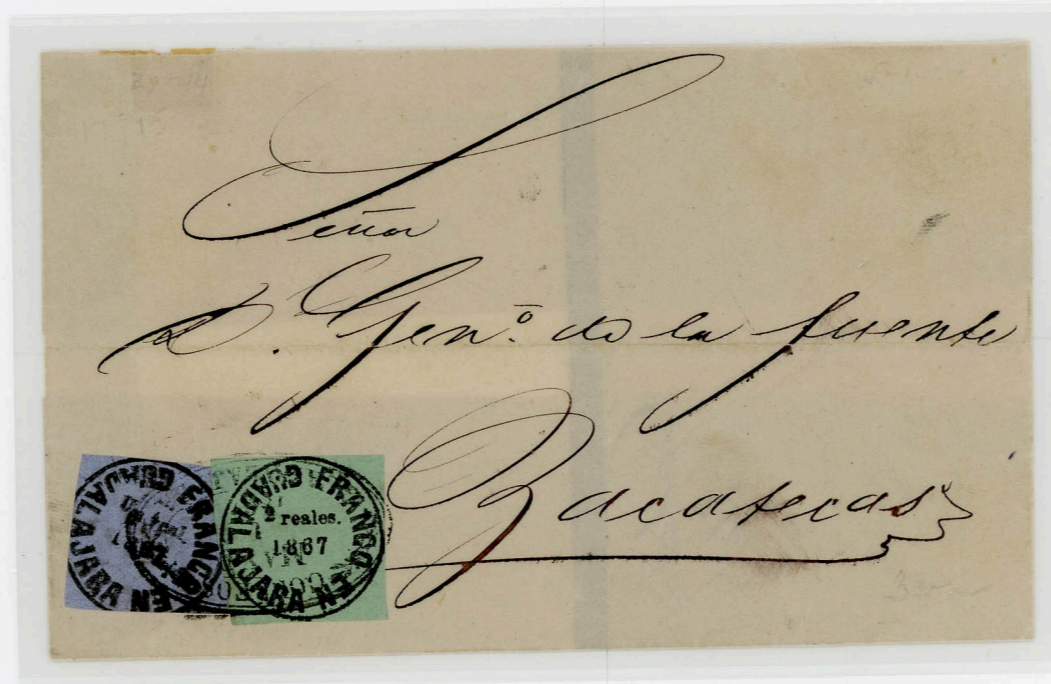 Señor
D. Genº. de la fuente
Zacatecas
FRANCO EN GUADALAJARA
FRANCO EN GUADALAJARA
2 reales.
1867